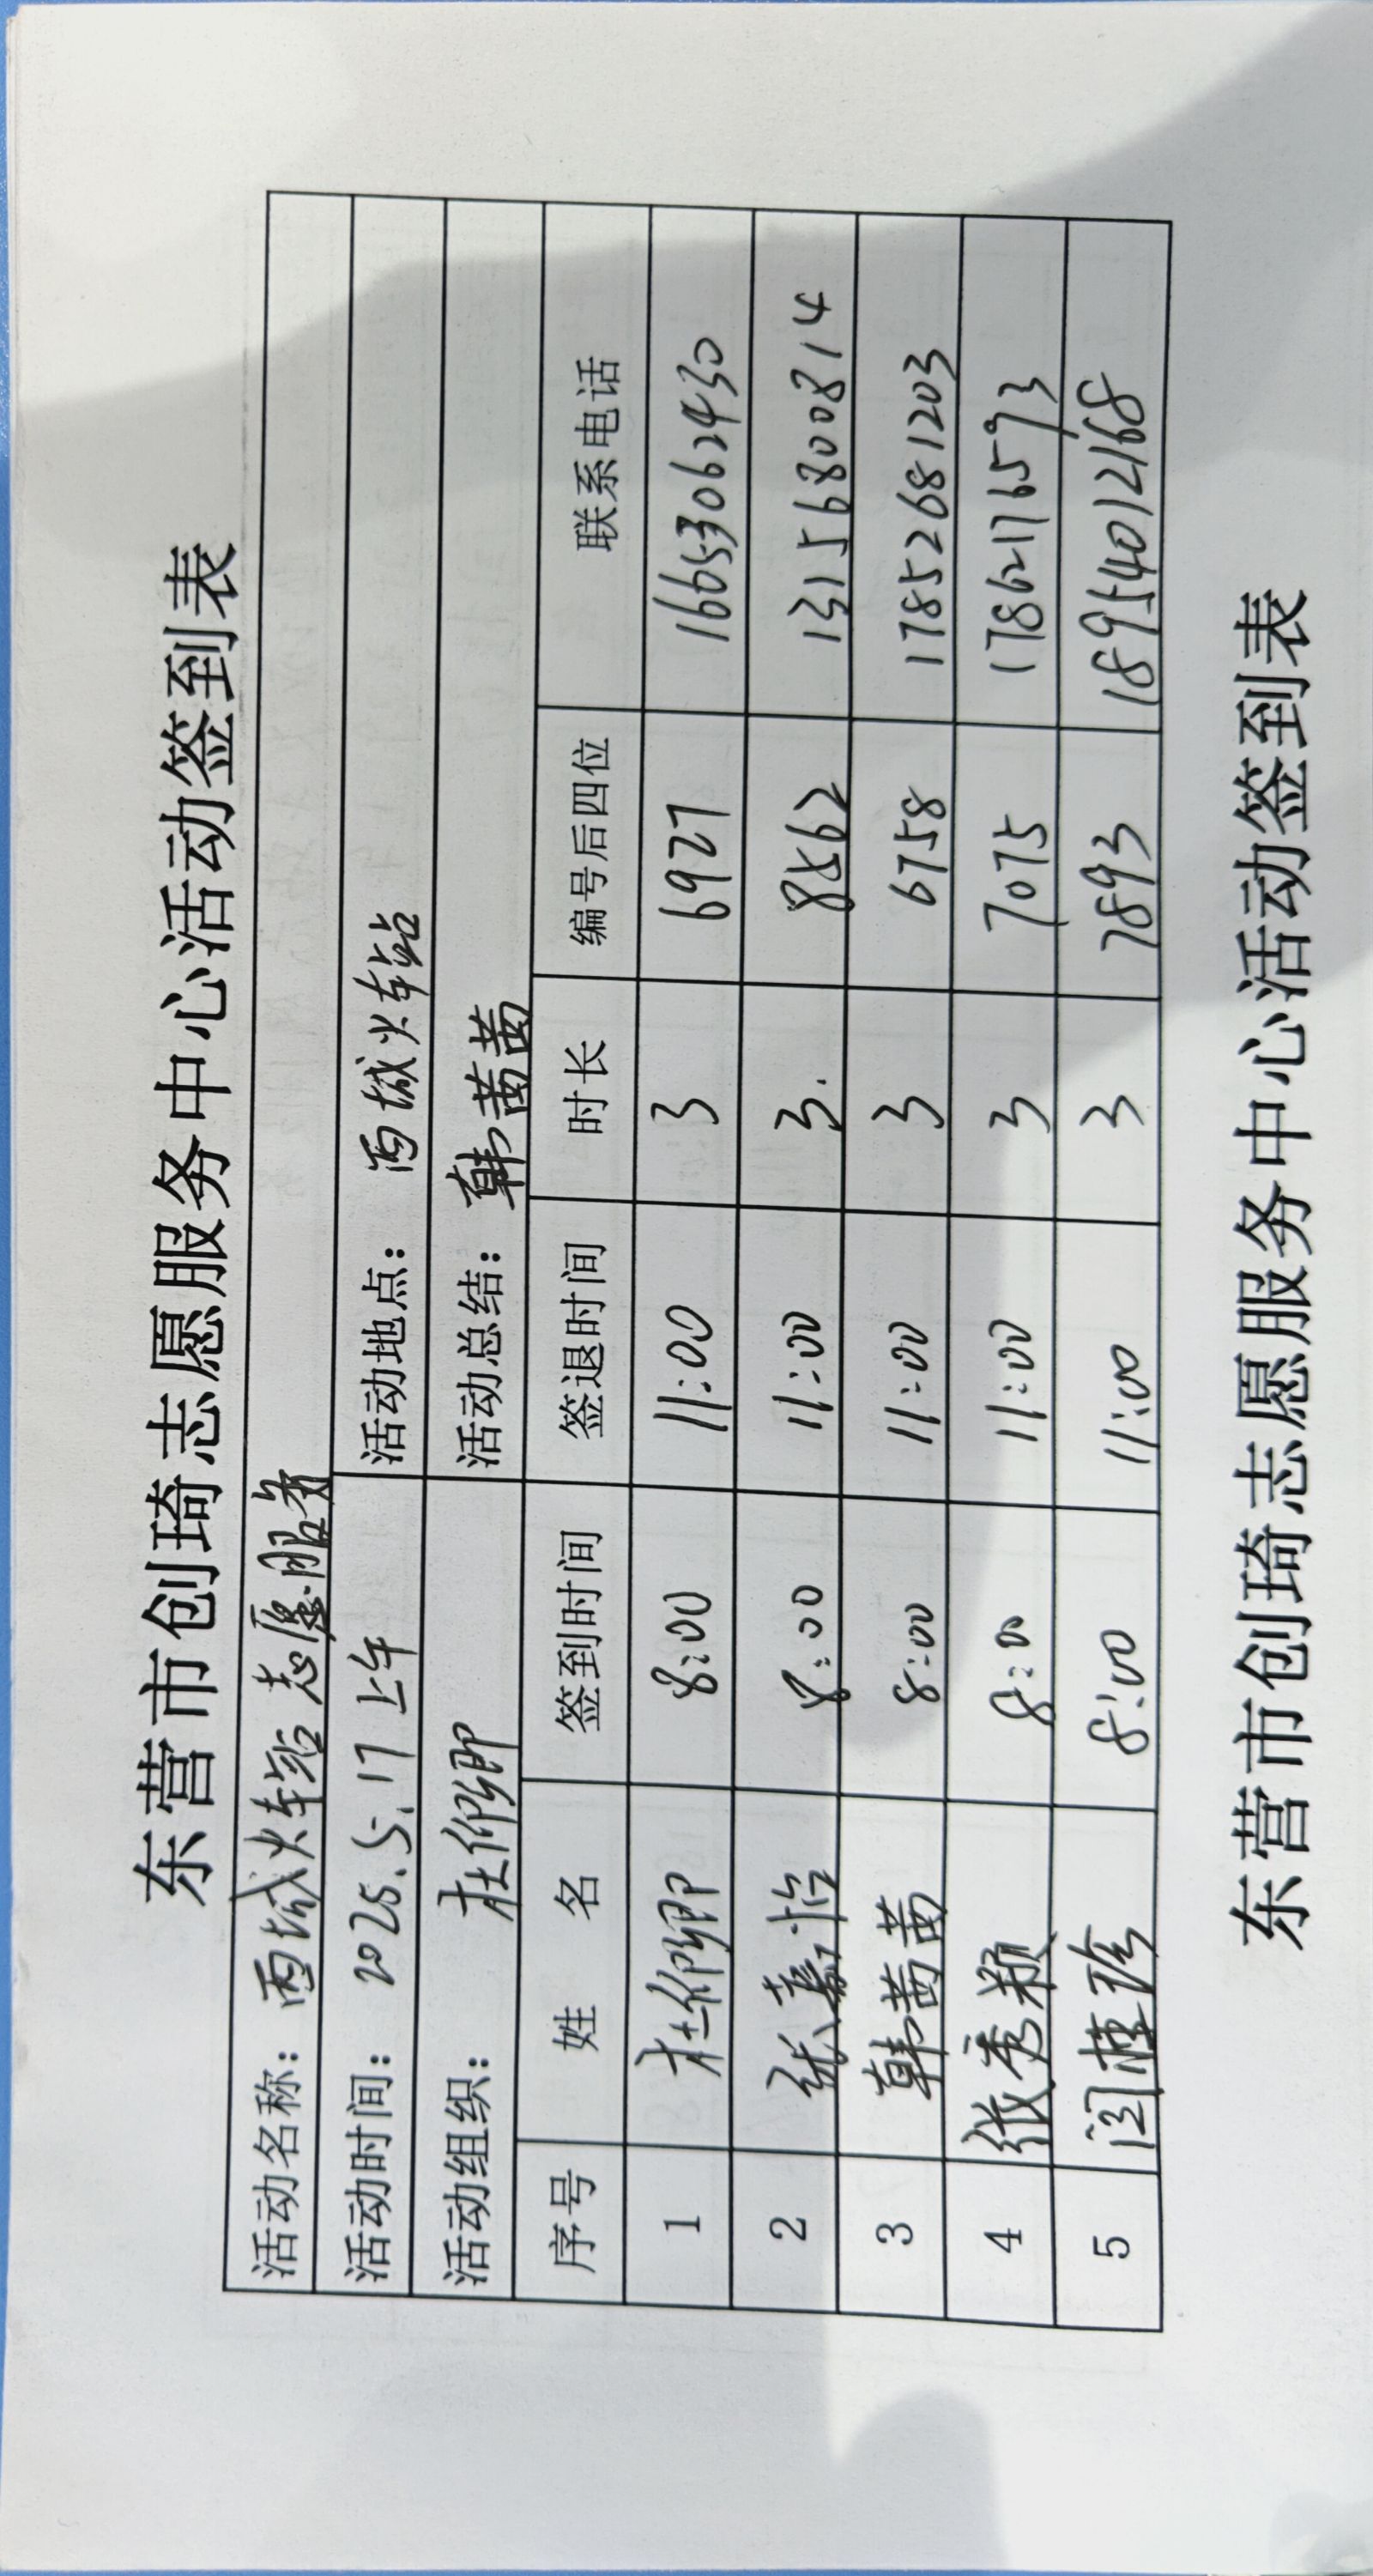 东营市创琦志愿服务中心活动签到表
活动名称： 西城火车站志愿服务
活动时间： 2025.5.17 上午 活动地点： 西城火车站
活动组织： 杜仰卿 活动总结： 韩茜茜
序号 姓 名 签到时间 签退时间 时长 编号后四位 联系电话
1 杜 8:00 11:00 3 6927 16653062430
2 张嘉怡 8:00 11:00 3. 8562 13156800814
3 韩茜茜 8:00 11:00 3 6758 17852681203
4 张秀颖 8:00 11:00 3 7075 17862116593
5 闫桂珍 8:00 11:00 3 7893 18954012168
东营市创琦志愿服务中心活动签到表